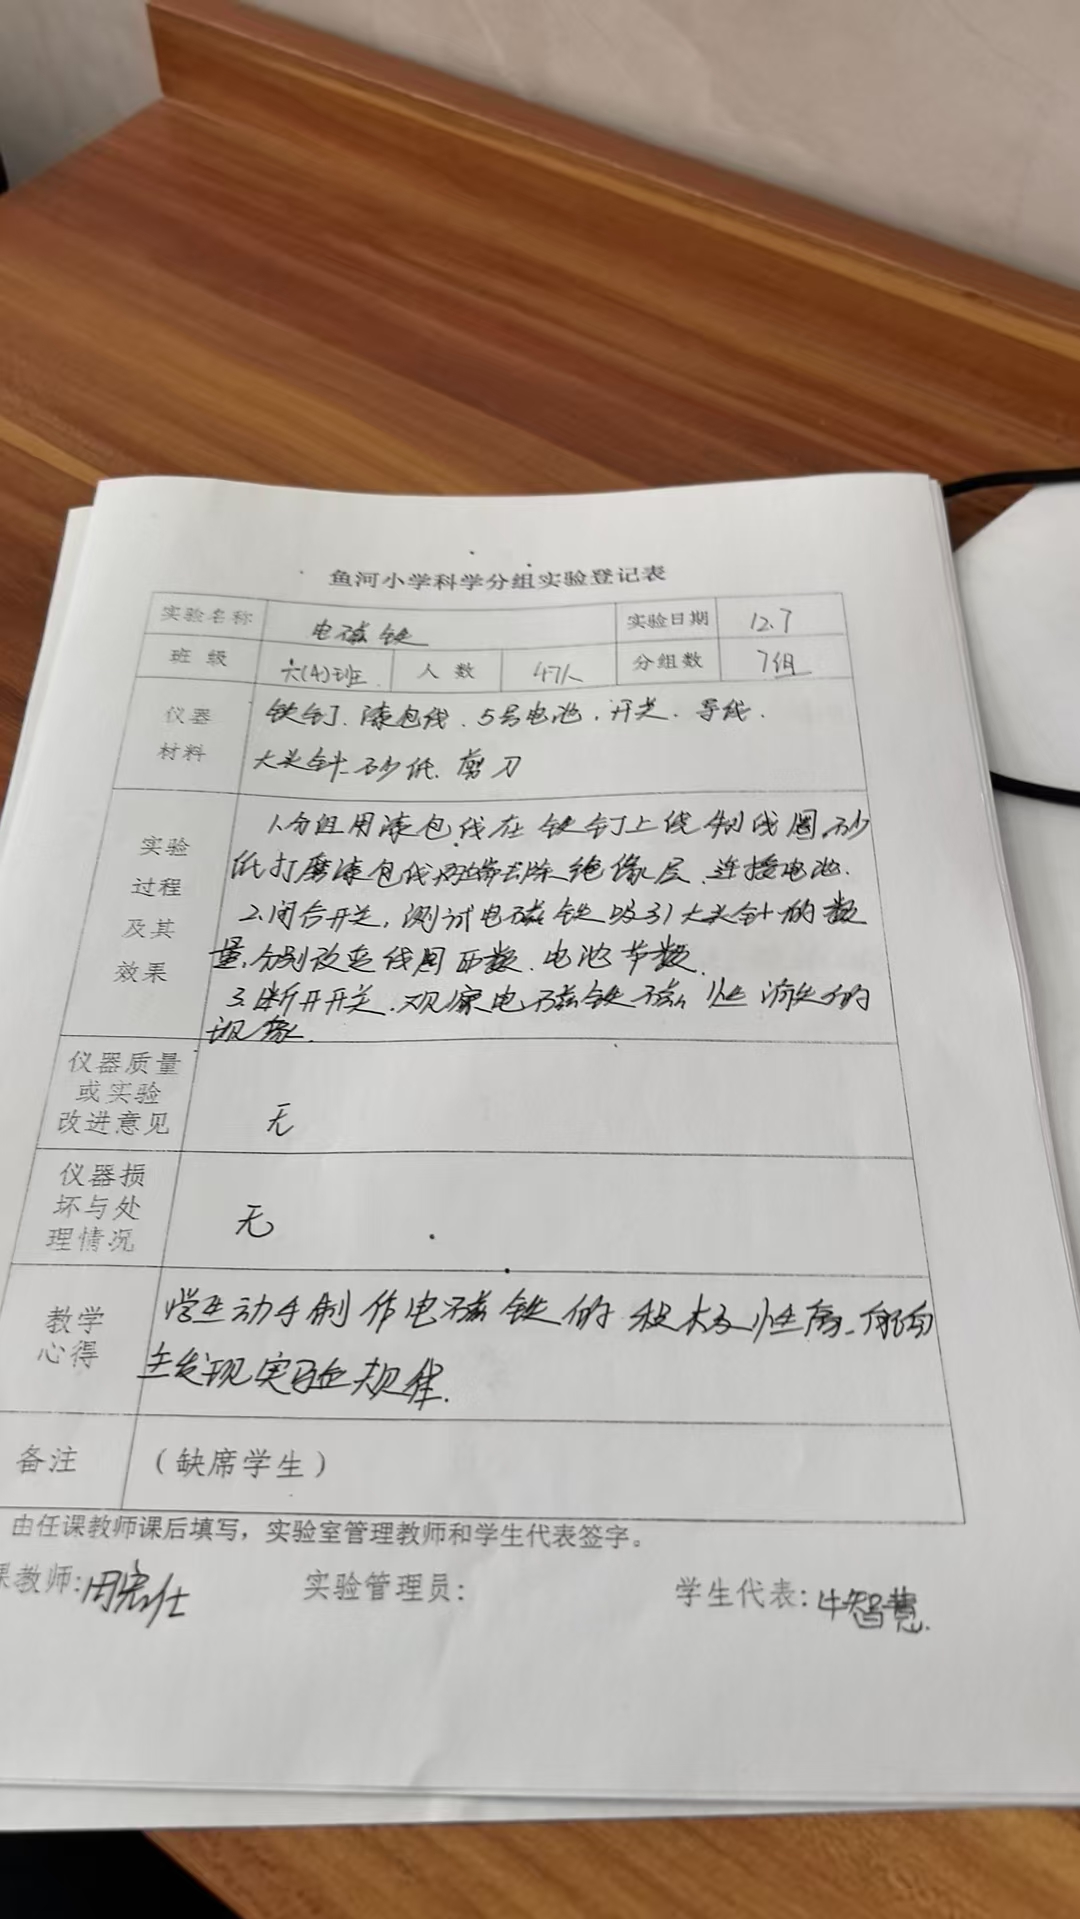 鱼河小学科学分组实验登记表
实验名称 电磁铁 实验日期 12.7
班 级 六(4)班 人 数 47人 分组数 7组
仪器 铁钉、漆包线、5号电池、开关、导线、
材料 大头针、砂纸、剪刀
实验 1.分组用漆包线在铁钉上绕制线圈,砂
过程 纸打磨漆包线两端去除绝缘层、连接电池.
及其 2.闭合开关,测试电磁铁吸引大头针的数
效果 量,分别改变线圈匝数、电池节数.
3.断开开关.观察电磁铁磁性消失的
现象.
仪器质量
或实验
改进意见 无
仪器损
坏与处 无
理情况
教学 学生动手制作电磁铁的积极性高,能自
心得 主发现实验规律.
备注 (缺席学生)
由任课教师课后填写,实验室管理教师和学生代表签字。
课教师: 实验管理员: 学生代表:牛智慧.